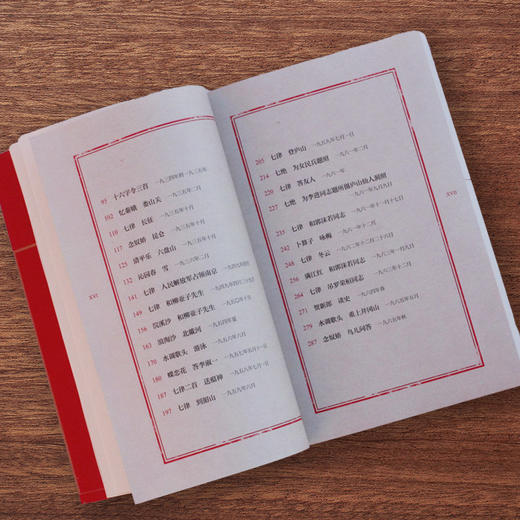 95 十六字令三首 一九三四年到一九三五年
102 忆秦娥 娄山关 一九三五年二月
110 七律 长征 一九三五年十月
117 念奴娇 昆仑 一九三五年十月
125 清平乐 六盘山 一九三五年十月
132 沁园春 雪 一九三六年二月
141 七律 人民解放军占领南京 一九四九年四月
149 七律 和柳亚子先生 一九四九年四月二十九日
156 浣溪沙 和柳亚子先生 一九五〇年十月
163 浪淘沙 北戴河 一九五四年夏
170 水调歌头 游泳 一九五六年六月
180 蝶恋花 答李淑一 一九五七年五月十一日
187 七律二首 送瘟神 一九五八年七月一日
197 七律 到韶山 一九五九年六月
XVI
205 七律 登庐山 一九五九年七月一日
214 七绝 为女民兵题照 一九六一年二月
220 七律 答友人 一九六一年
227 七绝 为李进同志题所摄庐山仙人洞照
一九六一年九月九日
235 七律 和郭沫若同志 一九六一年十一月十七日
242 卜算子 咏梅 一九六一年十二月
248 七律 冬云 一九六二年十二月二十六日
256 满江红 和郭沫若同志 一九六三年一月九日
264 七律 吊罗荣桓同志 一九六三年十二月
271 贺新郎 读史 一九六四年春
279 水调歌头 重上井冈山 一九六五年五月
287 念奴娇 鸟儿问答 一九六五年秋
XVII